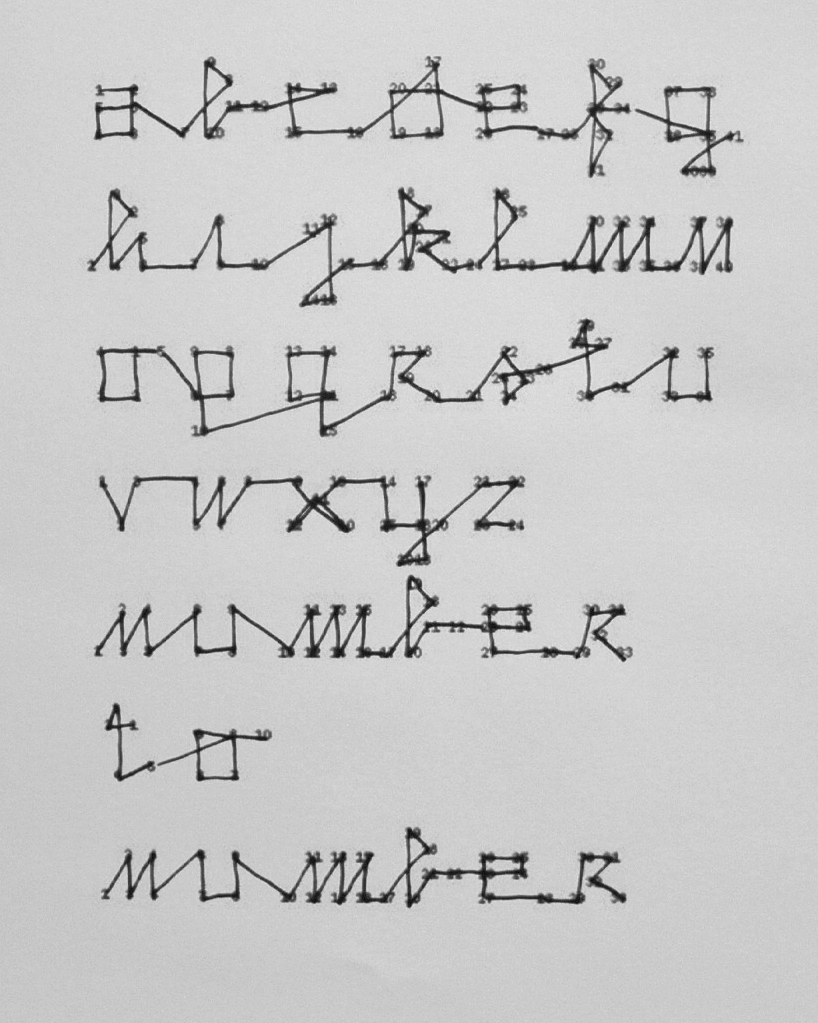 abcdefg
hijklmn
opqrstu
vwxyz
number
to
number